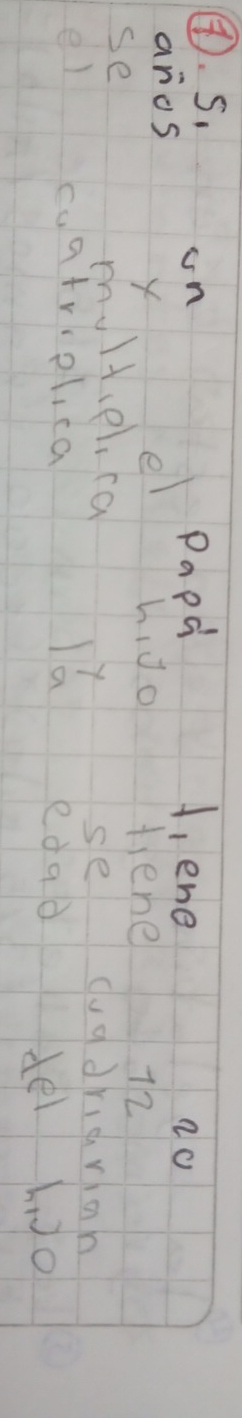 1. Si un papá tiene 20
años y el hijo tiene 12
se multiplica y se cuadriarian
el cuatriplica la edad del hijo